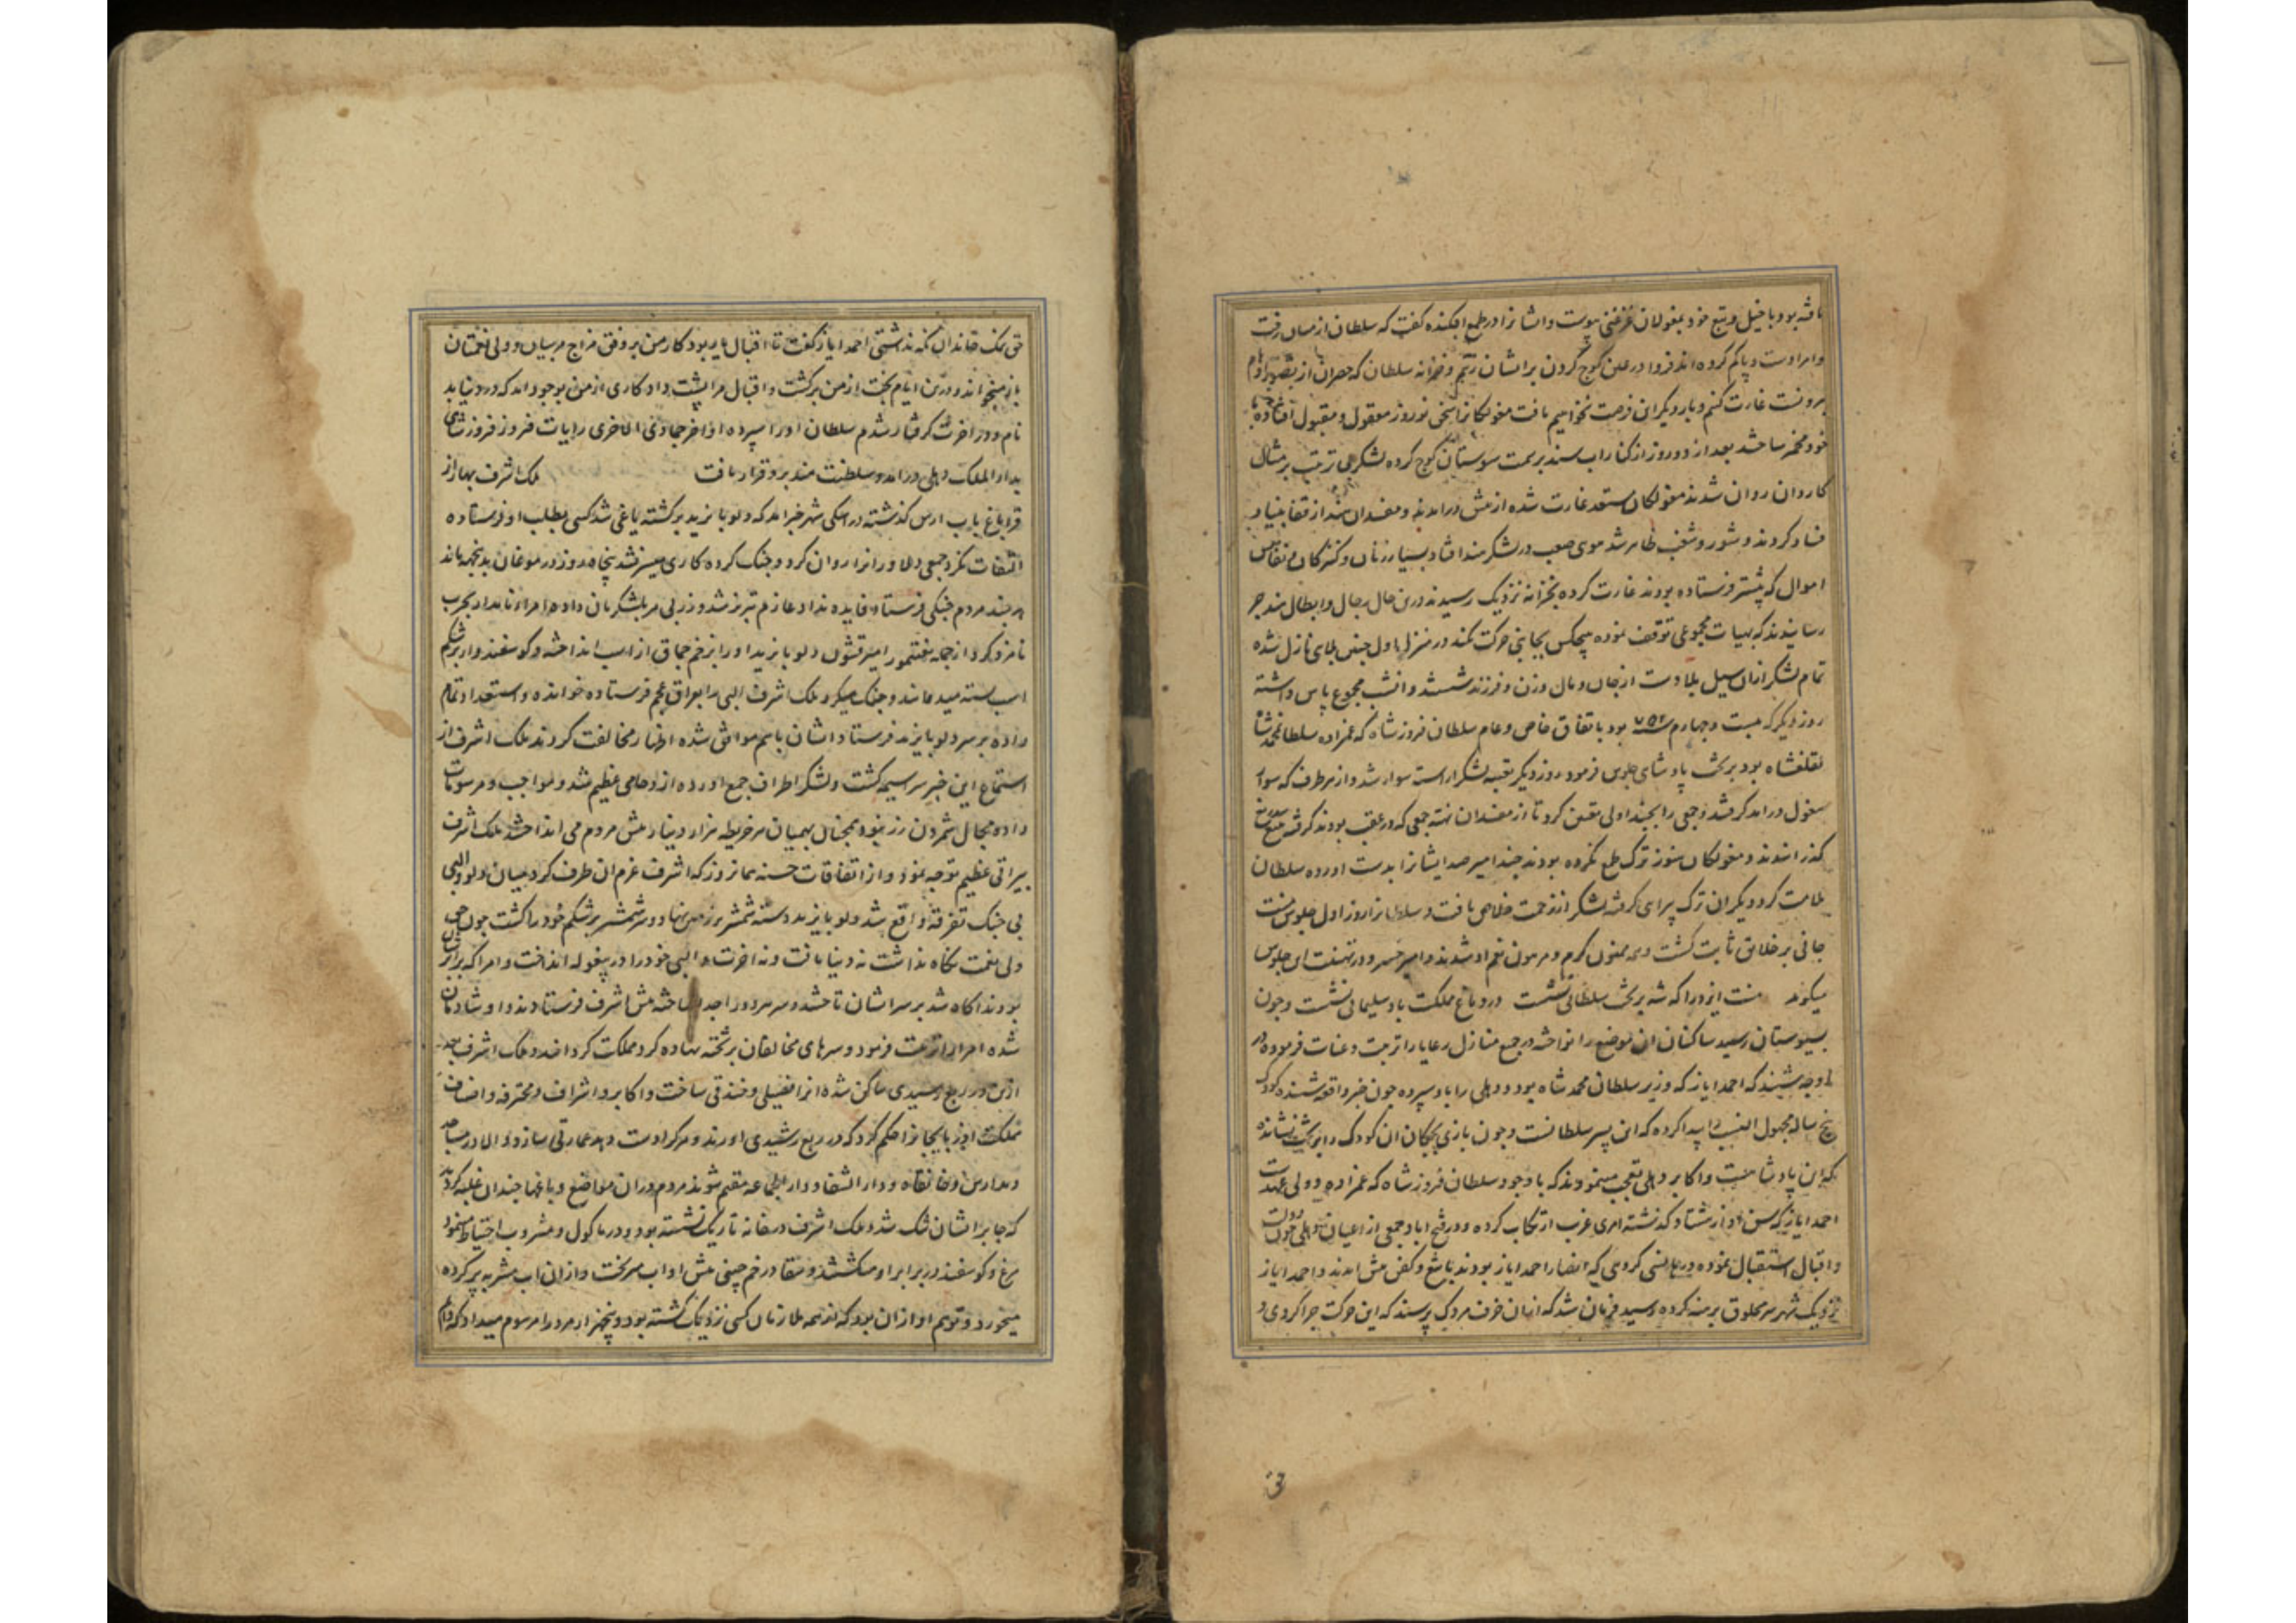 یافته بود با خیل و تبع خود بمغولان غزغنی پیوست و ایشانرا در طمع افکنده گفت که سلطان از میان رفت
و امرا دست و پا کم کرده اند فردا در حین کوچ کردن بر ایشان زنیم و خزانه سلطان که حصر آن از تصور اوهام
بیرونست غارت کنیم و بار دیگر این فرصت نخواهیم یافت مغولکانرا سخن نوروز معقول و مقبول افتاده با
خود مخمر ساختند بعد از دو روز از کنار آب سند بر سمت سیوستان کوچ کرده لشکر بی ترتیب بر مثال
کاروان روان شدند مغولکان مستعد غارت شده از پیش در آمدند و مفسدان سند از قفا بنیاد
فساد کردند و شور و شغب ظاهر شد هول صعب در لشکر مند افتاد بسیار زنان و کنیزکان و نفایس
اموال که پیشتر فرستاده بودند غارت کرده بخزانه نزدیک رسیدند درین حال رجال و ابطال هند خبر
رسانیدند که بهیات مجموعی توقف نموده هیچکس بجانبی حرکت نکند در منزل اول چنین بلای نازل شده
تمام لشکر ازان سیل بلا دست از جان و مال و زن و فرزند شستند و آن شب مجموع پاس داشته
روز دیگر که بیست و چهارم ۷۵۲ بود باتفاق خاص و عام سلطان فیروز شاه که عمزاده سلطان محمد شاه
تغلقشاه بود بر تخت پادشاهی جلوس فرمود روز دیگر بقیه لشکر آراسته سوار شد و از هر طرف که سوار
مغول در آمد گرفتند و جمعی را بجنداولی معین کرد تا از مفسدان تهته جمعی که در عقب بودند گرفته بتیغ
گذرانیدند و مغولکان هنوز ترک طمع نکرده بودند چند امیر صده ایشانرا بدست آورده سلطان
ملامت کرد و دیگران ترک پی ایی گرفته لشکر از زحمت خلاص یافت و سلطانرا روز اول جلوس منت
جانی بر خلایق ثابت گشت و همه ممنون کرم و مرهون نعم او شدند و امیر خسرو در تهنیت این جلوس
میگوید منت ایزد را که شه بر تخت سلطانی نشست در دماغ مملکت باد سلیمانی نشست و چون
بسیوستان رسید ساکنان آن موضع را نواخته در جمیع منازل رعایا را تربیت و عنایت فرموده در
راه وجه شنیدند که احمد ایاز که وزیر سلطان محمد شاه بود و دهلی را باو سپرده چون خبر واقعه شنیده کودک
پنج ساله مجهول النسب را پیدا کرده که این پسر سلطانست و چون بازی بچگان آن کودک را بر تخت نشانده
که این پادشاهست و اکابر دهلی تعجب مینمودند که با وجود سلطان فیروز شاه که عمزاده و ولی عهدست
احمد ایاز که سن او از هشتاد گذشته امری غریب ارتکاب کرده و در فتح آباد جمعی از اعیان دهلی چون دولت
و اقبال استقبال نموده در هانسی گروهی که انصار احمد ایاز بودند با تیغ و کفن پیش آمدند و احمد ایاز
نزدیک شهر سر محلوق برهنه کرده رسید فرمان شد که از آن خرف مردک پرسند که این حرکت چرا کردی و
حق نمک خاندان نگه نداشتی احمد ایاز گفت تا اقبال یار بود کار من بر وفق مزاج مربیان و ولی نعمتان
باز میخواند و درین ایام بخت از من برگشت و اقبال مرا پشت داد کاری از من بوجود آمد که در دنیا بد
نام و در آخرت گرفتار شدم سلطان او را سپرده اواخر جمادی الاخری رایات فیروز فیروز شاهی
بدار الملک دهلی در آمد و سلطنت هند برو قرار یافت ملک اشرف بهار از
قراباغ بآب ارس گذشته در اسکی شهر خبر آمد که دلو بایزید برگشته یاغی شد کسی بطلب او فرستاده
التفات نکرد جمعی دلاورانرا روان کرد و جنگ کرده کاری میسر نشد پنجاه روز در موغان بدینجهت بماند
هر چند مردم جنگی فرستاد فایده نداد عازم تبریز شد و زر بی مر بلشکریان داده امراء نامدار بحرب
نامزد کرد از جمله هفتمور امیر قشون دلو بایزید او را بزخم چماق از اسب انداخته و گوسفندوار بر شکم
اسب بسته میدوانید و جنگ میکرد ملک اشرف البی را بعراق عجم فرستاده خوانده و استعداد تمام
داده بر سر دلو بایزید فرستاد ایشان باهم موافق شده اظهار مخالفت کردند ملک اشرف از
استماع این خبر سراسیمه گشت و لشکر اطراف جمع آورده ازدحامی عظیم شد و مواجب و مرسومات
داده مجال شمردن زر نبود همچنان بهمیان هر خریطه هزار دینار پیش مردم می انداختند ملک اشرف
بیراقی عظیم توجه نمود و از اتفاقات حسنه همانروز که اشرف عزم آن طرف کرد میان دلو و البی
بی جنگ تفرقه واقع شد دلو بایزید دسته شمشیر بر زمین نهاد و سر شمشیر بر شکم خود را کشت چون حق
ولی نعمت نگاه نداشت نه دنیا یافت و نه آخرت و البی خود را در بیغوله انداخت و امرا که بر ایشان
بودند آگاه شد بر سر ایشان تاختند و سر هر دو را جدا ساخته پیش اشرف فرستادند و او شادمان
شده امرا را تربیت فرمود و سرهای مخالفان بر تخته نهاده گرد مملکت گردانید و ملک اشرف بعد
ازین در ربع رشیدی ساکن شده آنرا فصیلی و خندقی ساخت و اکابر و اشراف و محترفه و اصناف
مملکت آذربایجانرا حکم کرد که در ربع رشیدی آورند و هر کرا دست دهد عمارتی سازد و الا در مساجد
و مدارس و خانقاه و دار الشفا و دار الضیافه مقیم شوند مردم در آن مواضع و باغها چندان غلبه کردند
که جا بر ایشان تنگ شد و ملک اشرف در خانه تاریک نشسته بود و در ماکول و مشروب احتیاط مینمود
مرغ و گوسفند در برابر او میکشتند و سقا در خم چینی پیش او آب میریخت و از آن آب مشربه پر کرده
میخورد و توهم او از آن بود که از همه ملازمان کسی نزدیک نگشته بود و پنجهزار مرد را مرسوم میداد که دایم